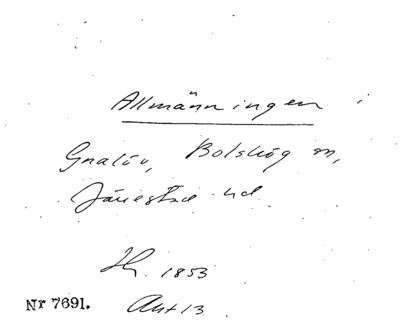 Allmänningen i
Gnalöv, Bolshög m,
Järrestad hd
1853
Nr 7691. Akt 13